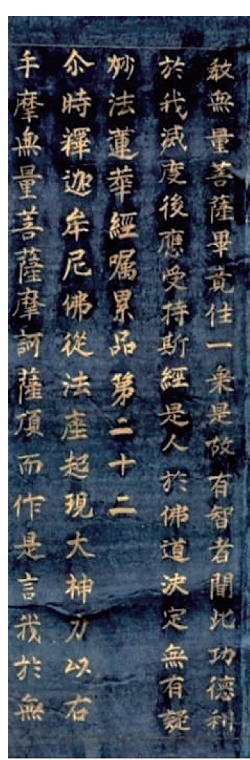 教無量菩薩畢竟住一乗是故有智者聞此功德利
於我滅度後應受持斯經是人於佛道决定無有疑
妙法蓮華經嘱累品第二十二
尒時釋迦牟尼佛從法座起現大神力以右
手摩無量菩薩摩訶薩頂而作是言我於無